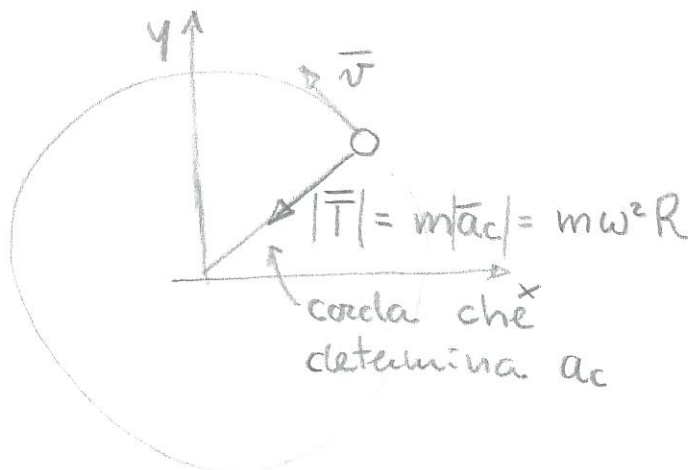 y
v̅
|T̅| = m|a̅c| = mω²R
x
corda che
determina ac